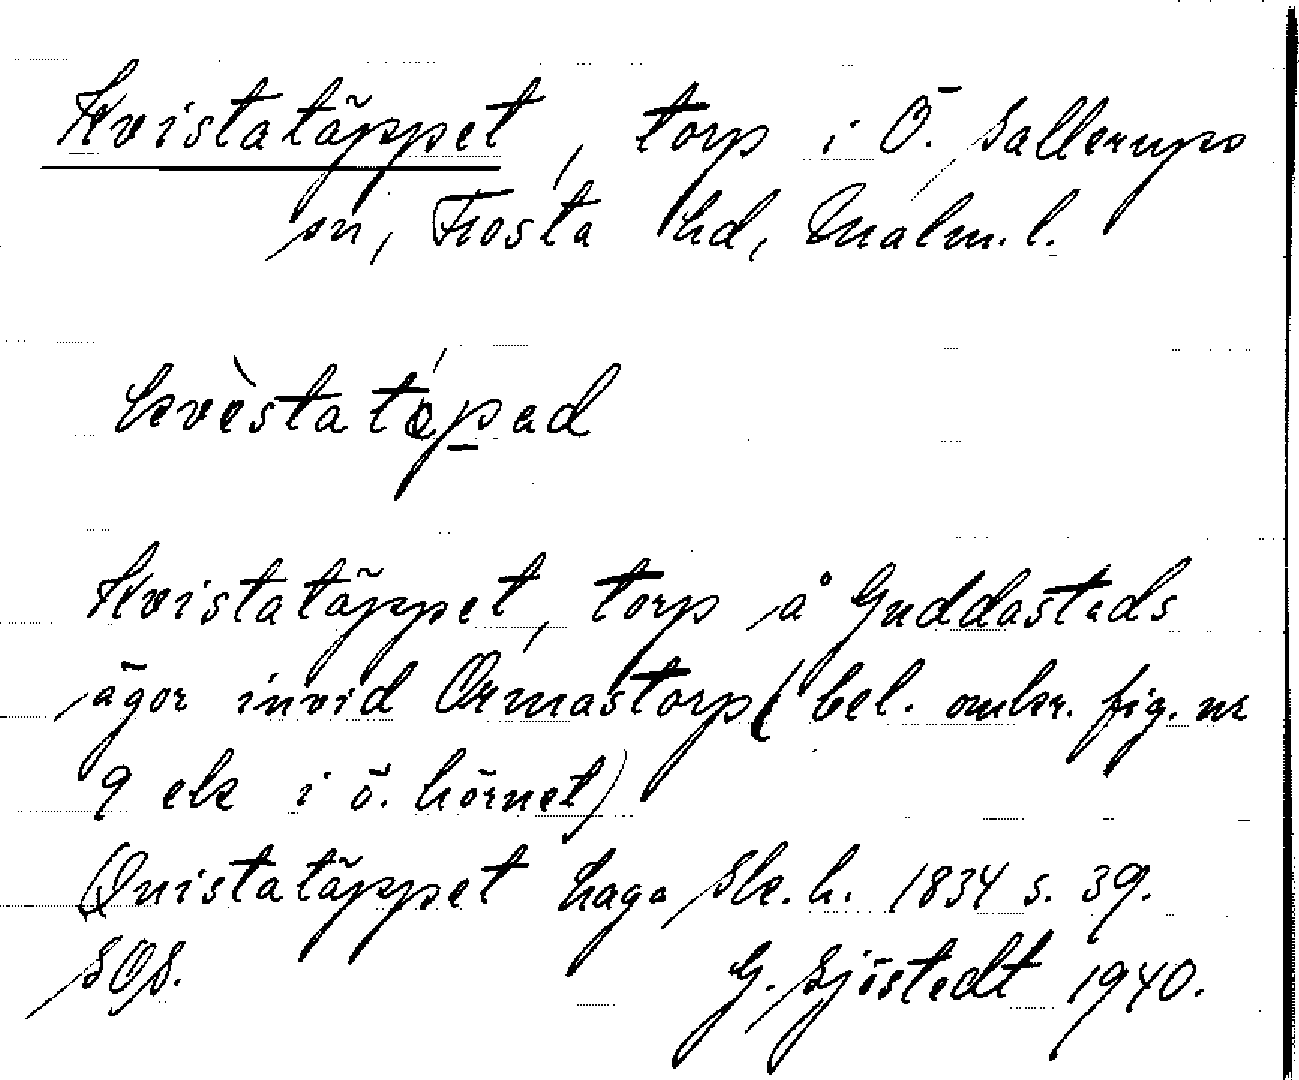 Kvistatäppet, torp i Ö. Sallerups
sn, Frosta hd, Malm. l.
kvèstatápad
Kvistatäppet, torp å Guddastads
ägor invid Ormastorp (bel. omkr. fig. nr
9 ek i ö. hörnet)
Quistatäppet haga Sk. h. 1834 s. 39.
SOS. G. Sjöstedt 1940.